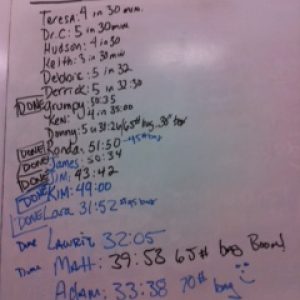 Teresa: 4 in 30 min.
Dr. C: 5 in 30 min
Hudson: 4 in 30
Keith: 3 in 30 min
Debbie: 5 in 32
Derrick: 5 in 32:30
DONE Grumpy: 50:35
Ken: 4 in 35:00
Donny: 5 in 31:26/65# bag, 30" box
DONE Ronda: 51:50
DONE James: 50:34
DONE JIM: 43:42
DONE KIM: 49:00
DONE Lara 31:52
Done Laurie 32:05
Done Matt: 39:53 65# bag Boom!
Adam: 33:38 70# bag